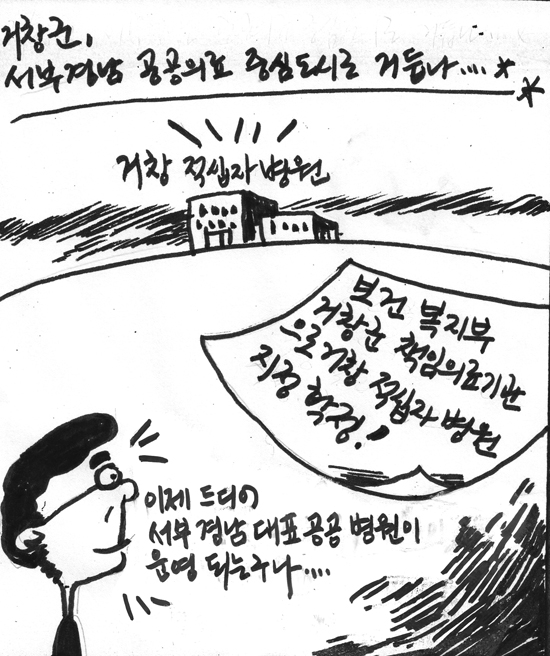 거창군,
서부경남 공공의료 중심도시로 거듭나....
거창 적십자병원
보건 복지부
거창군 책임의료기관
으로 거창 적십자 병원
지정 확정!
이제 드디어
서부경남 대표 공공 병원이
운영 되는구나....